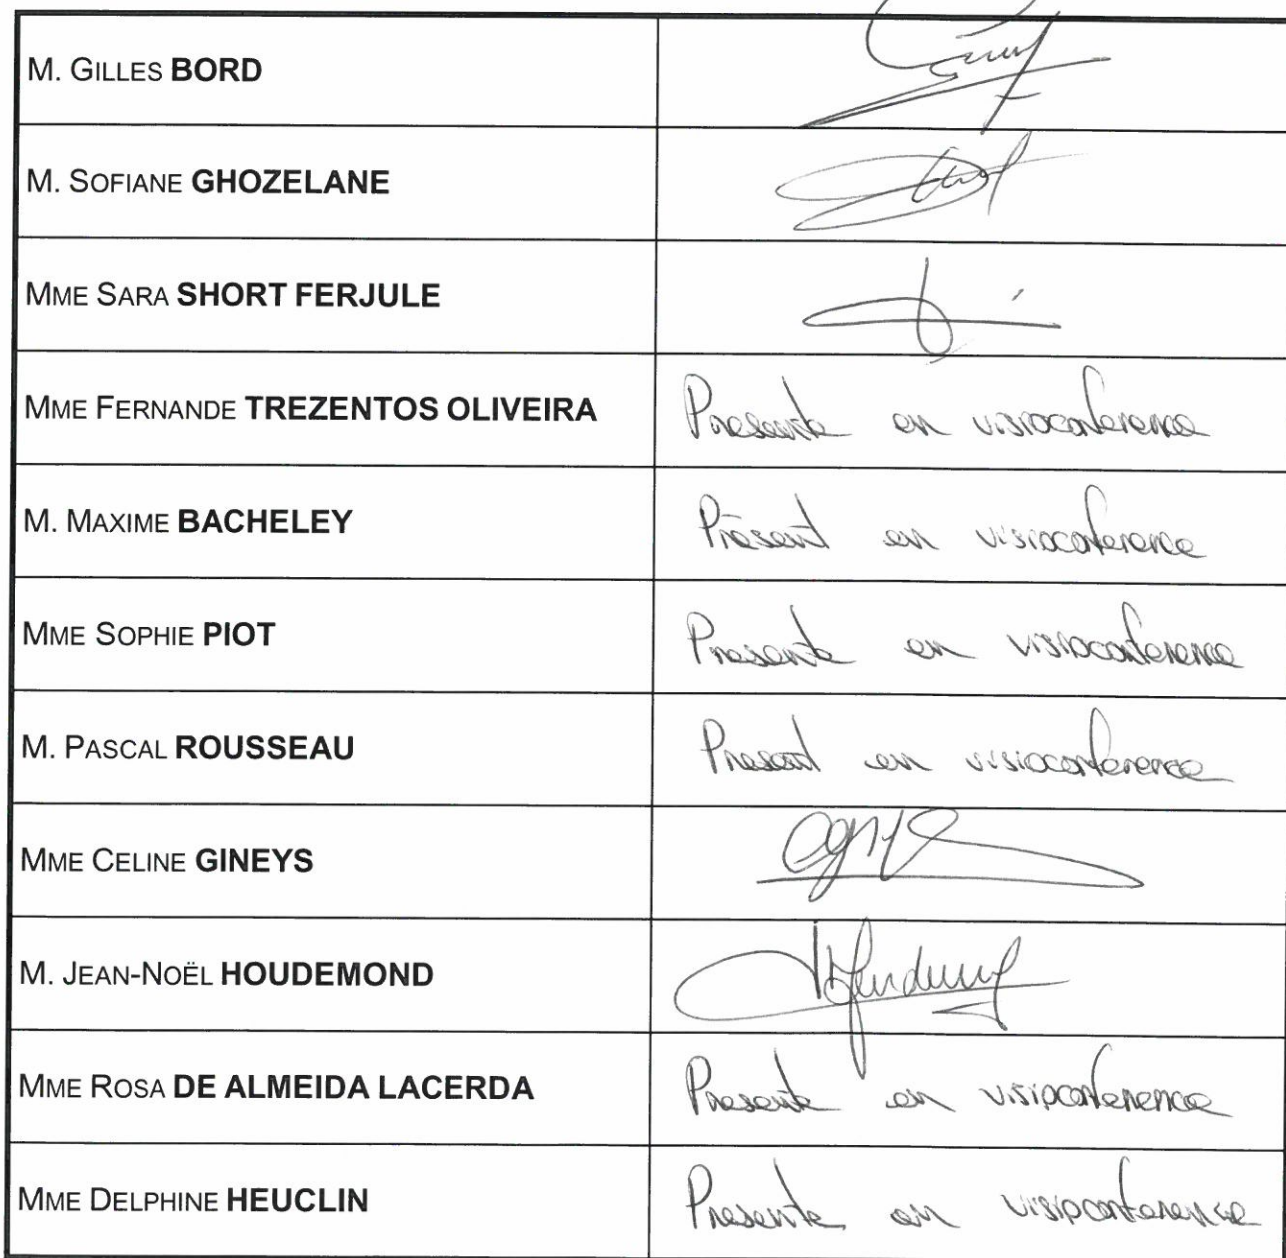 M. GILLES BORD
M. SOFIANE GHOZELANE
MME SARA SHORT FERJULE
MME FERNANDE TREZENTOS OLIVEIRA Presente en visioconference
M. MAXIME BACHELEY Présent en visioconference
MME SOPHIE PIOT Presente en visioconference
M. PASCAL ROUSSEAU Present en visioconference
MME CELINE GINEYS
M. JEAN-NOËL HOUDEMOND
MME ROSA DE ALMEIDA LACERDA Presente en visioconference
MME DELPHINE HEUCLIN Presente en visioconference